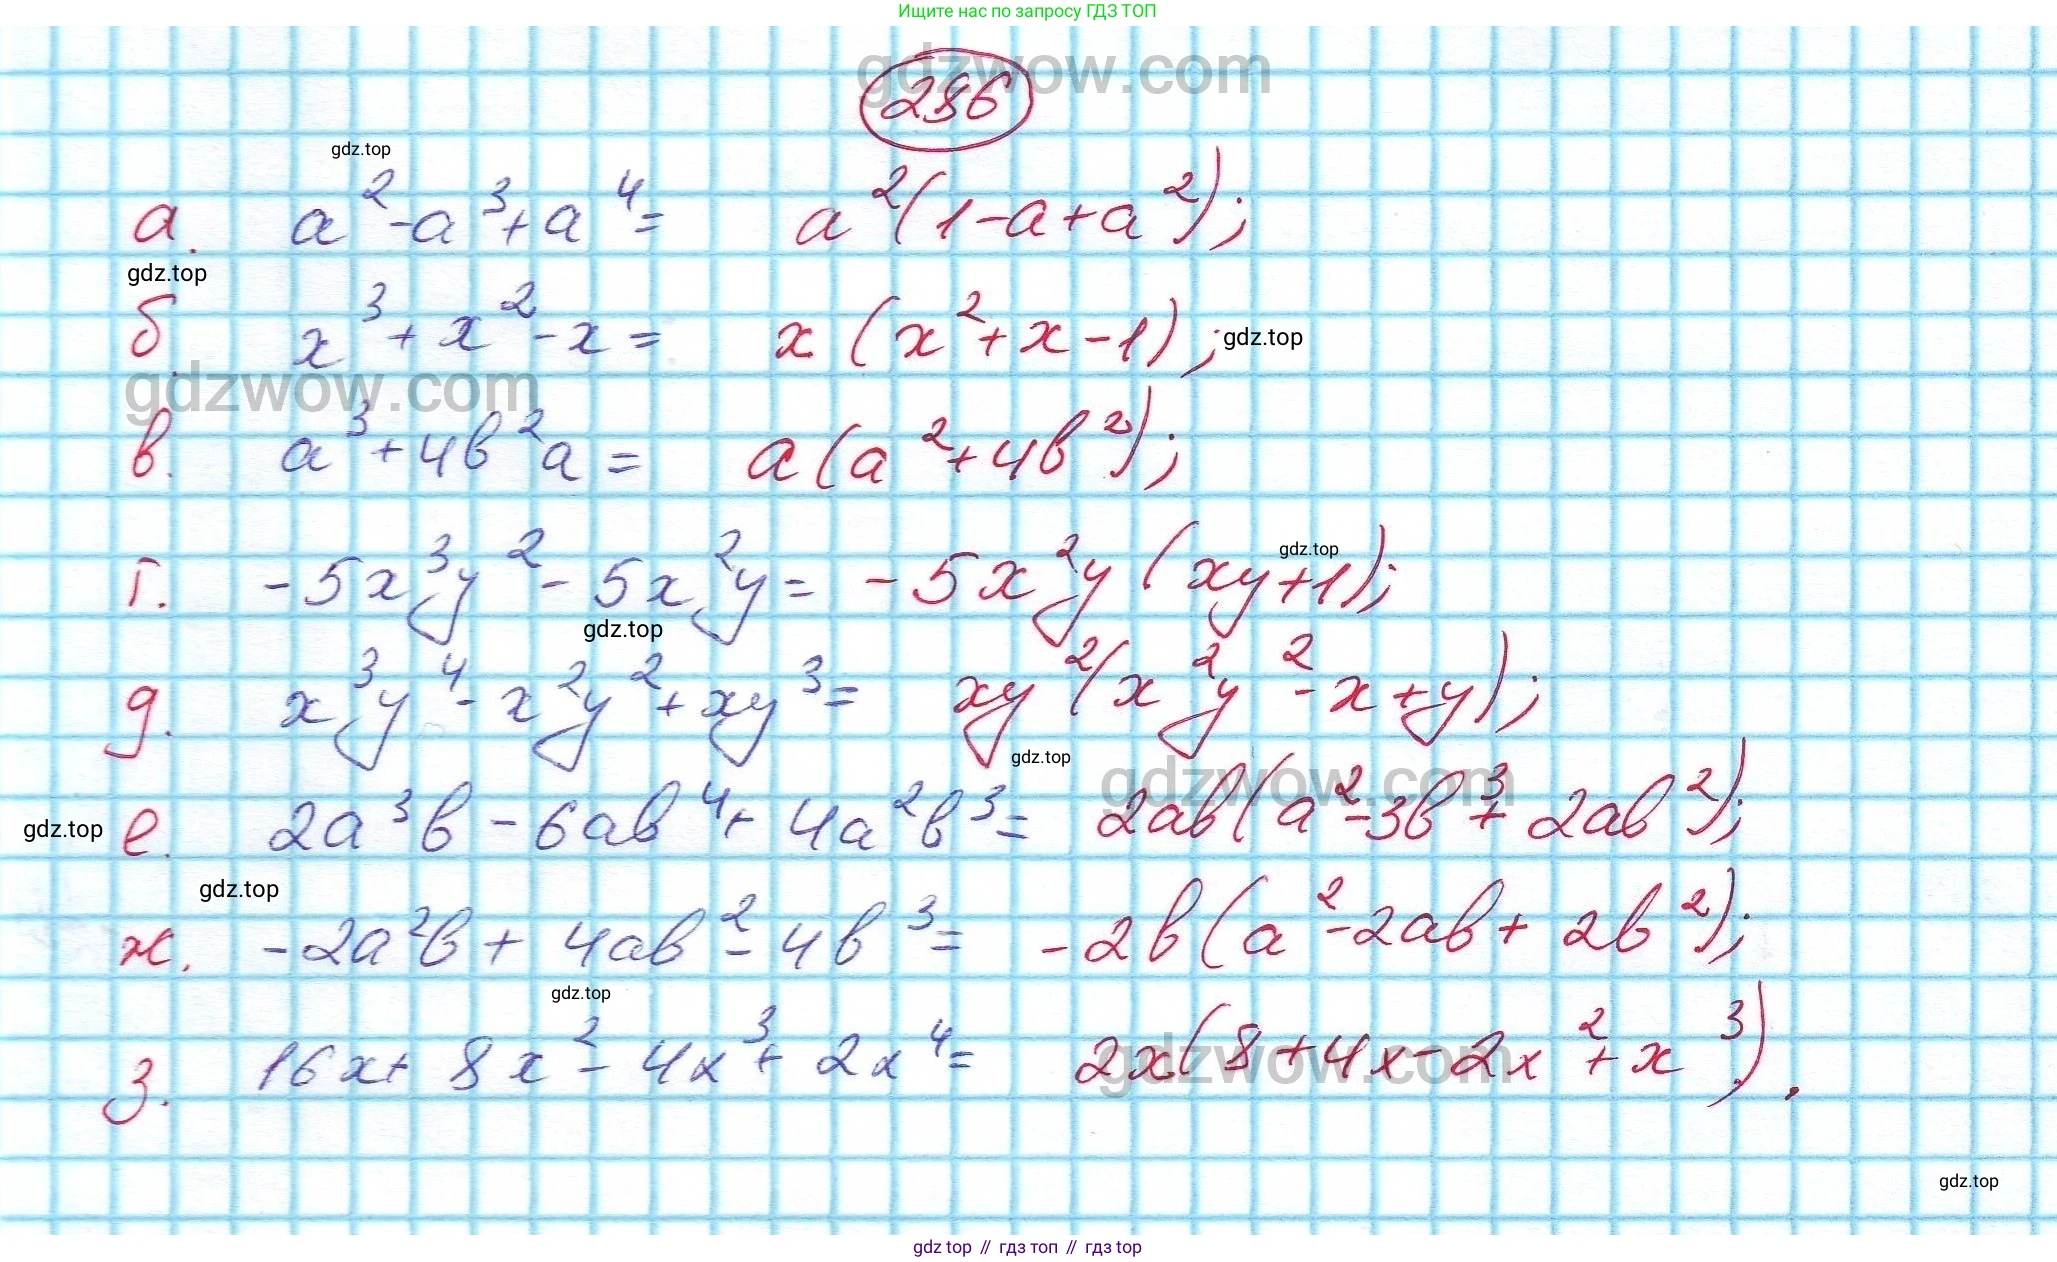 Ищите нас по запросу ГДЗ ТОП
gdzwow.com
286
gdz.top
а. a² - a³ + a⁴ = a²(1 - a + a²);
gdz.top
б. x³ + x² - x = x(x² + x - 1); gdz.top
gdzwow.com
в. a³ + 4b²a = a(a² + 4b²);
gdz.top
г. -5x³y² - 5x²y = -5x²y(xy + 1);
gdz.top
д. x³y⁴ - x²y² + xy³ = xy²(x²y² - x + y);
gdz.top
gdzwow.com
gdz.top е. 2a³b - 6ab⁴ + 4a²b³ = 2ab(a² - 3b³ + 2ab²);
gdz.top
ж. -2a²b + 4ab² - 4b³ = -2b(a² - 2ab + 2b²);
gdz.top
з. 16x + 8x² - 4x³ + 2x⁴ = 2x(8 + 4x - 2x² + x³).
gdzwow.com
gdz.top
gdz top // гдз топ // гдз top